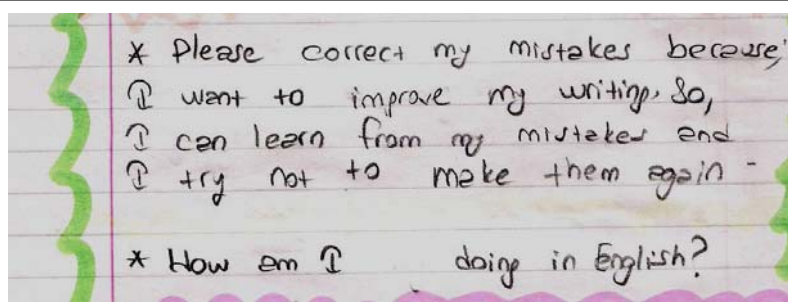 * Please correct my mistakes because;
I want to improve my writing. So,
I can learn from my mistakes and
I try not to make them again -
* How am I doing in English?